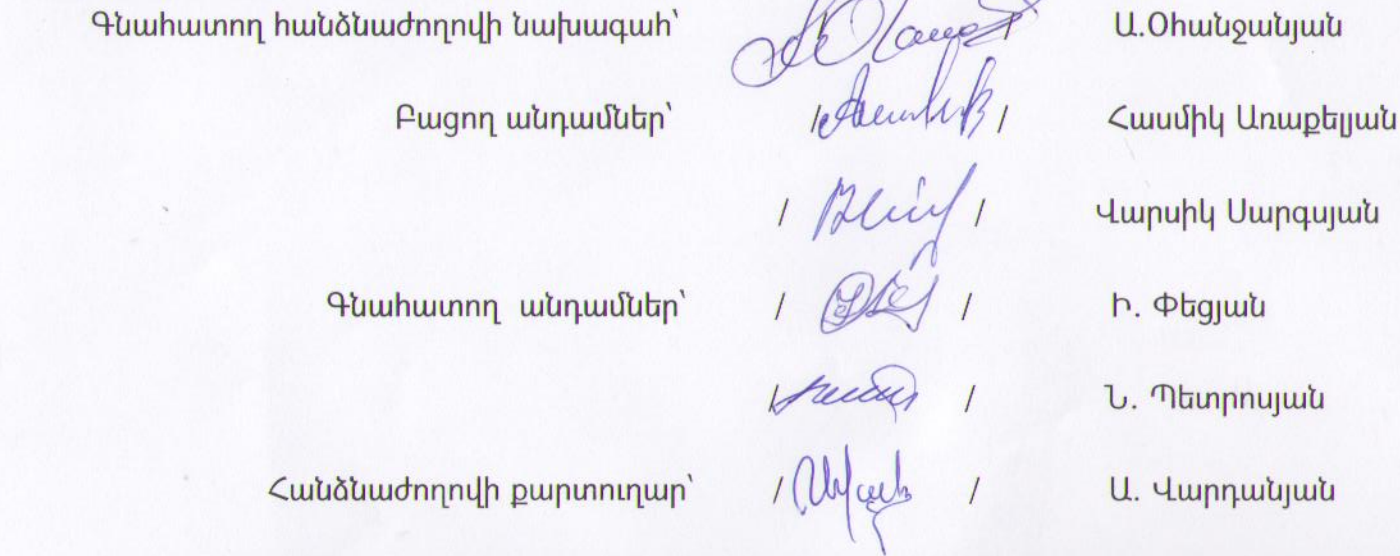 Գնահատող հանձնաժողովի նախագահ՝ / Ա.Օհանջանյան
Բացող անդամներ՝ / / Հասմիկ Առաքելյան
/ / Վարսիկ Սարգսյան
Գնահատող անդամներ՝ / / Ի. Փեցյան
/ / Ն. Պետրոսյան
Հանձնաժողովի քարտուղար՝ / / Ա. Վարդանյան